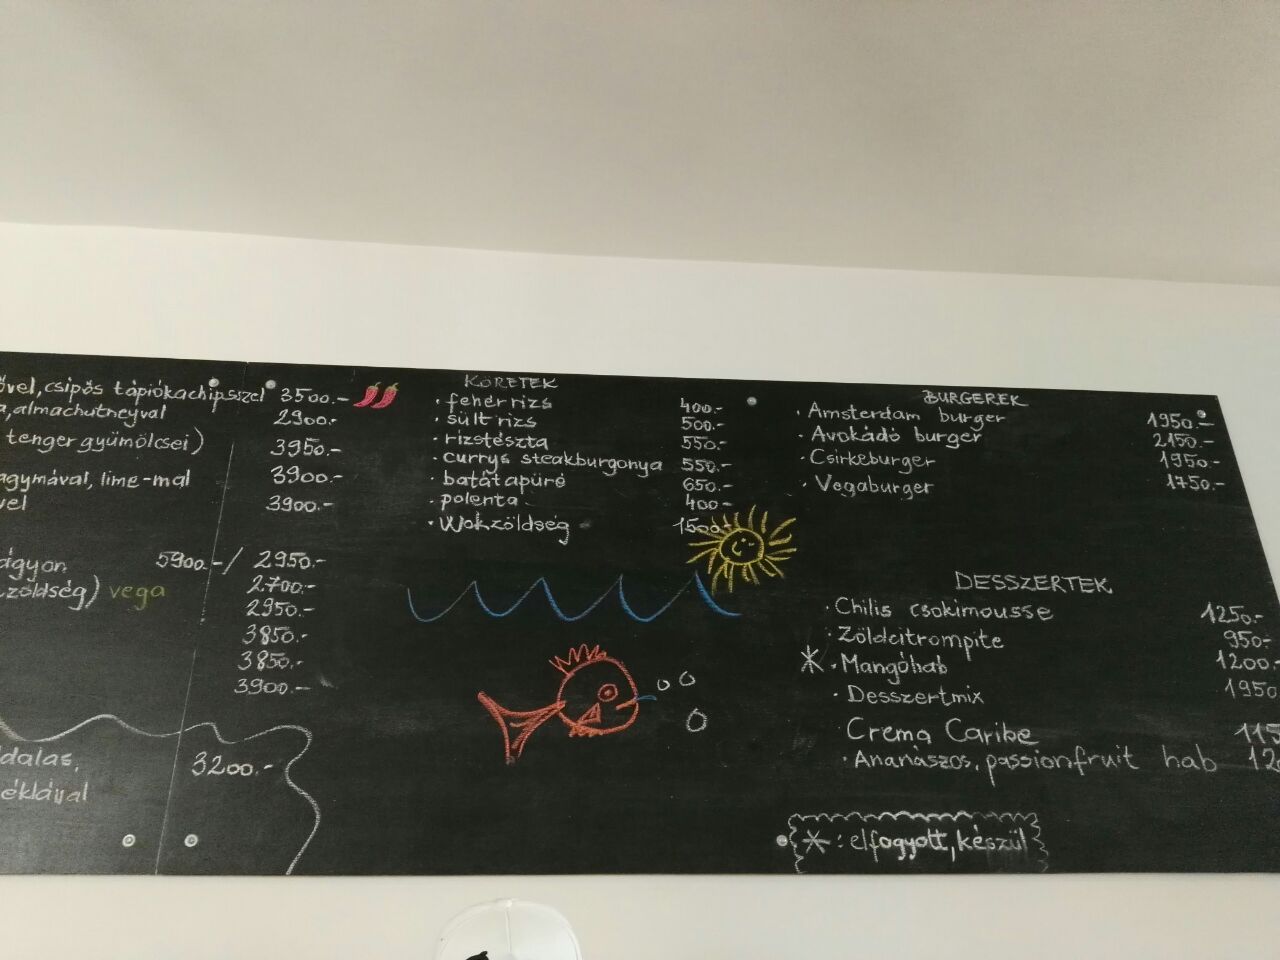 csípős tápiókachipszel 3500.-
almachutneyval 2900.-
tenger gyümölcsei) 3950.-
lime-mal 3900.-
3900.-
5900.-/ 2950.-
zöldség) vega 2700.-
2950.-
3850.-
3850.-
3900.-
3200.-
KÖRETEK
· fehér rizs 400.-
· sült rizs 500.-
· rizstészta 550.-
· currys steakburgonya 550.-
· batátapüré 650.-
· polenta 400.-
· Wokzöldség 1500.-
BURGEREK
· Amsterdam burger 1950.-
· Avokádó burger 2150.-
· Csirkeburger 1950.-
· Vegaburger 1750.-
DESSZERTEK
· Chilis csokimousse 1250.-
· Zöldcitrompite 950.-
* · Mangóhab 1200.-
· Desszertmix 1950
Crema Caribe
· Ananászos, passionfruit hab
* : elfogyott, készül